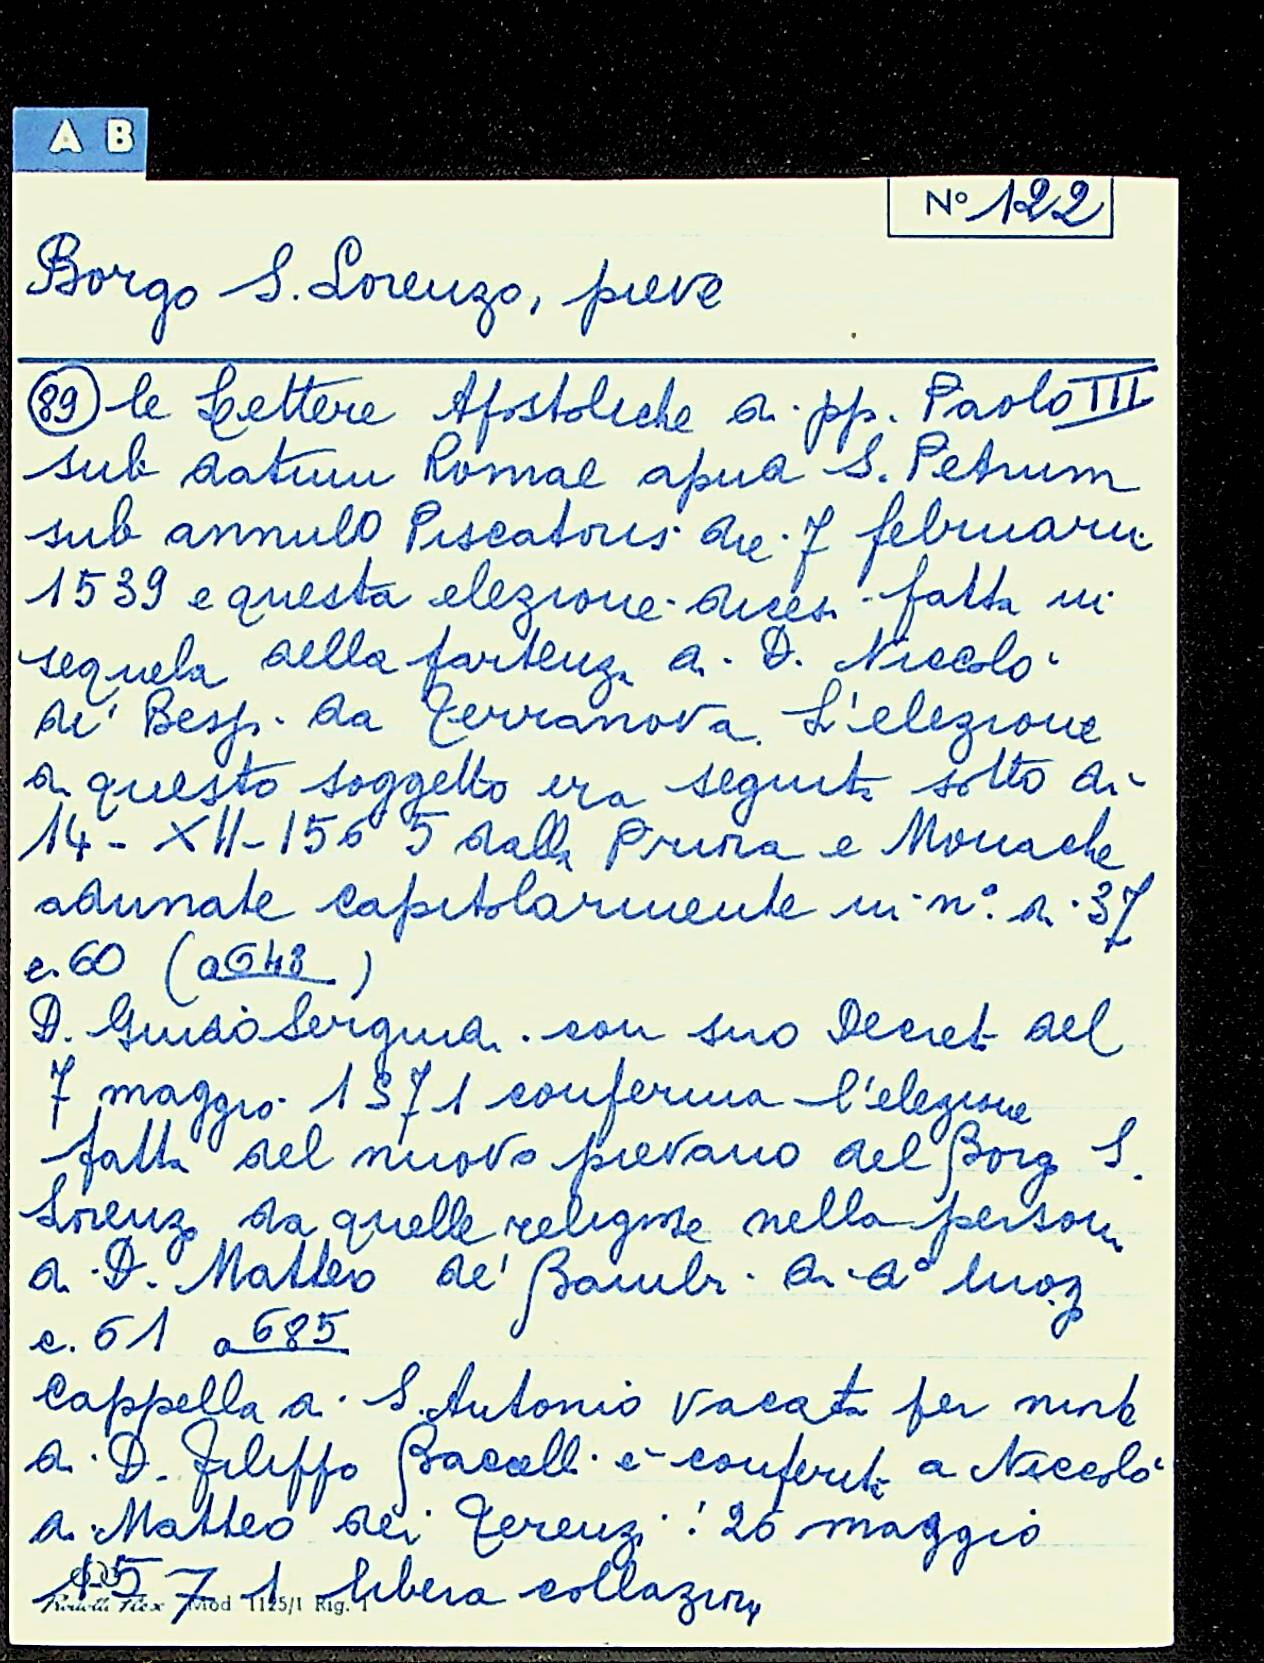 A B
N° 122
Borgo S. Lorenzo, pieve
89 le Lettere Apostoliche di pp. Paolo III
sub datum Romae apud S. Petrum
sub annulo Piscatoris die 7 februarii
1539 e questa elezione dicesi fatta in
sequela della partenza di D. Niccolò
de' Besp. da Terranova. L'elezione
di questo soggetto era seguita sotto di
14-XII-156 5 dalla Priora e Monache
adunate capitolarmente in n° di 37
c. 60 (a 648)
D. Guido Serguidi con suo Decreto del
7 maggio 1571 conferma l'elezione
fatta del nuovo pievano del Borgo S.
Lorenzo da quelle religiose nella persona
di D. Matteo de' Bambi di do luogo
c. 61 a 685
Cappella di S. Antonio vacata per morte
di D. Filippo Bacelli è conferita a Niccolò
di Matteo dei Terenzi : 26 maggio
1571 libera collazione
Mod 1125/1 Rig. 1